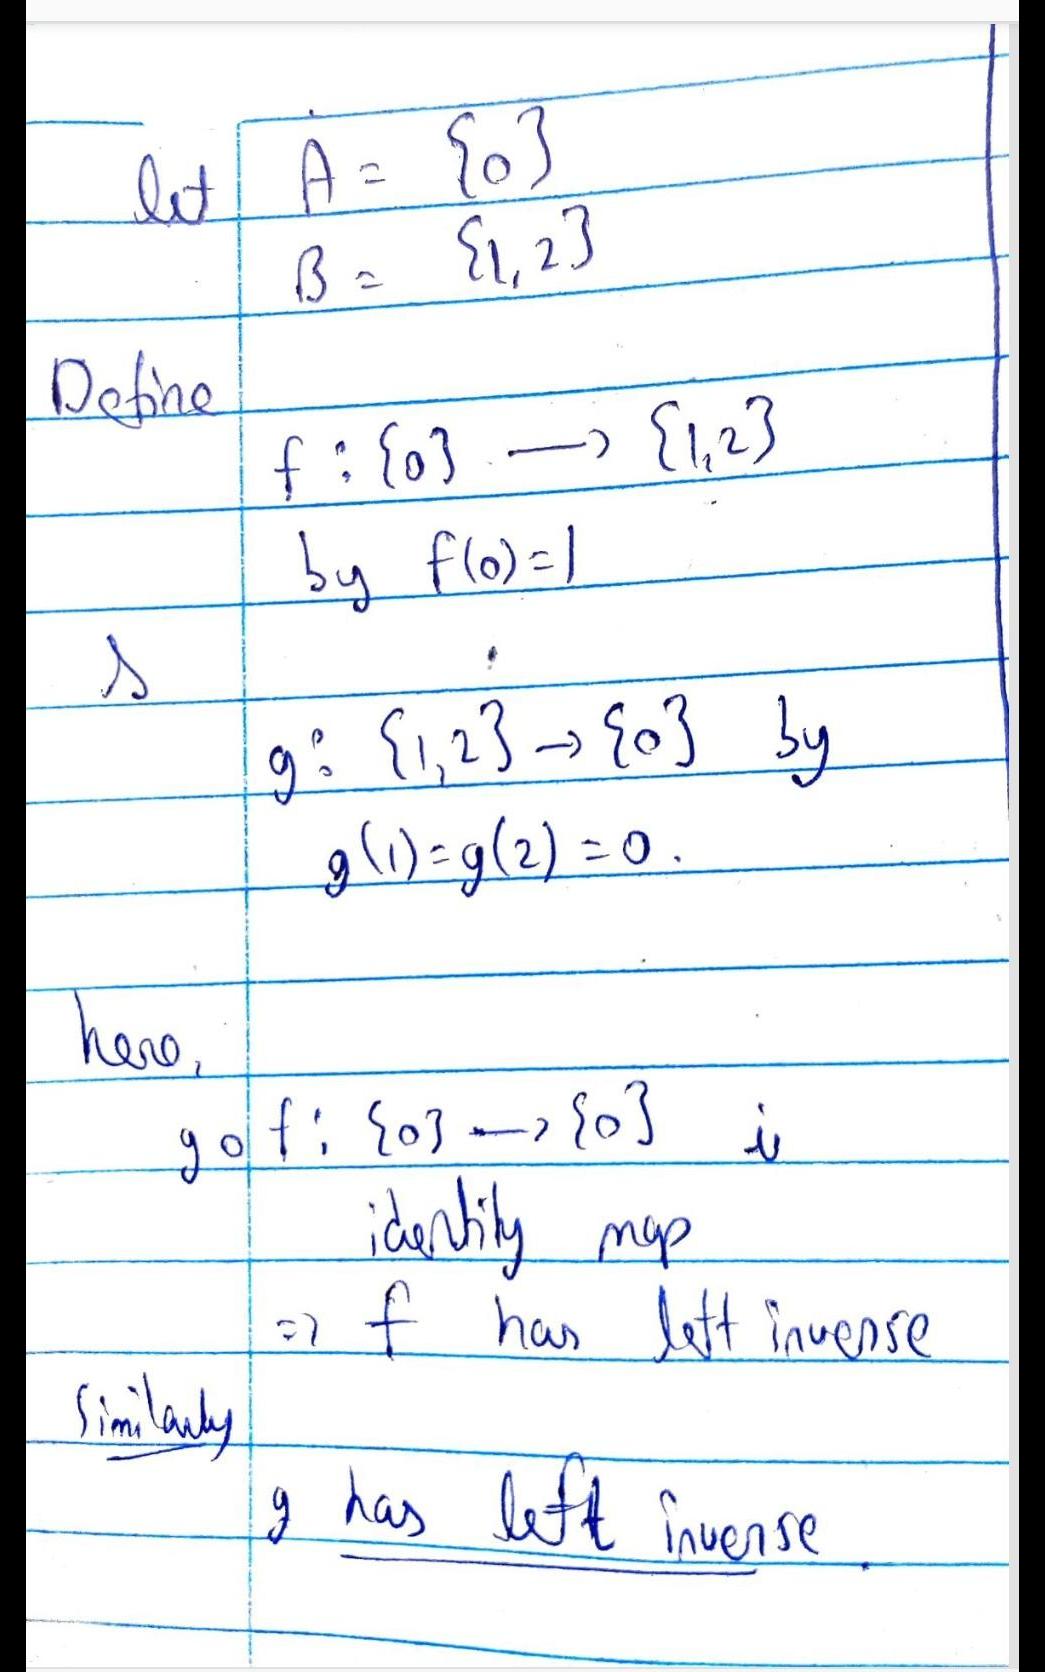 let A = {0}
B = {1,2}
Define
f : {0} → {1,2}
by f(0)=1
g : {1,2} → {0} by
g(1)=g(2)=0.
here,
gof : {0} → {0} is
identity map
=> f has left inverse
Similarly
g has left inverse.